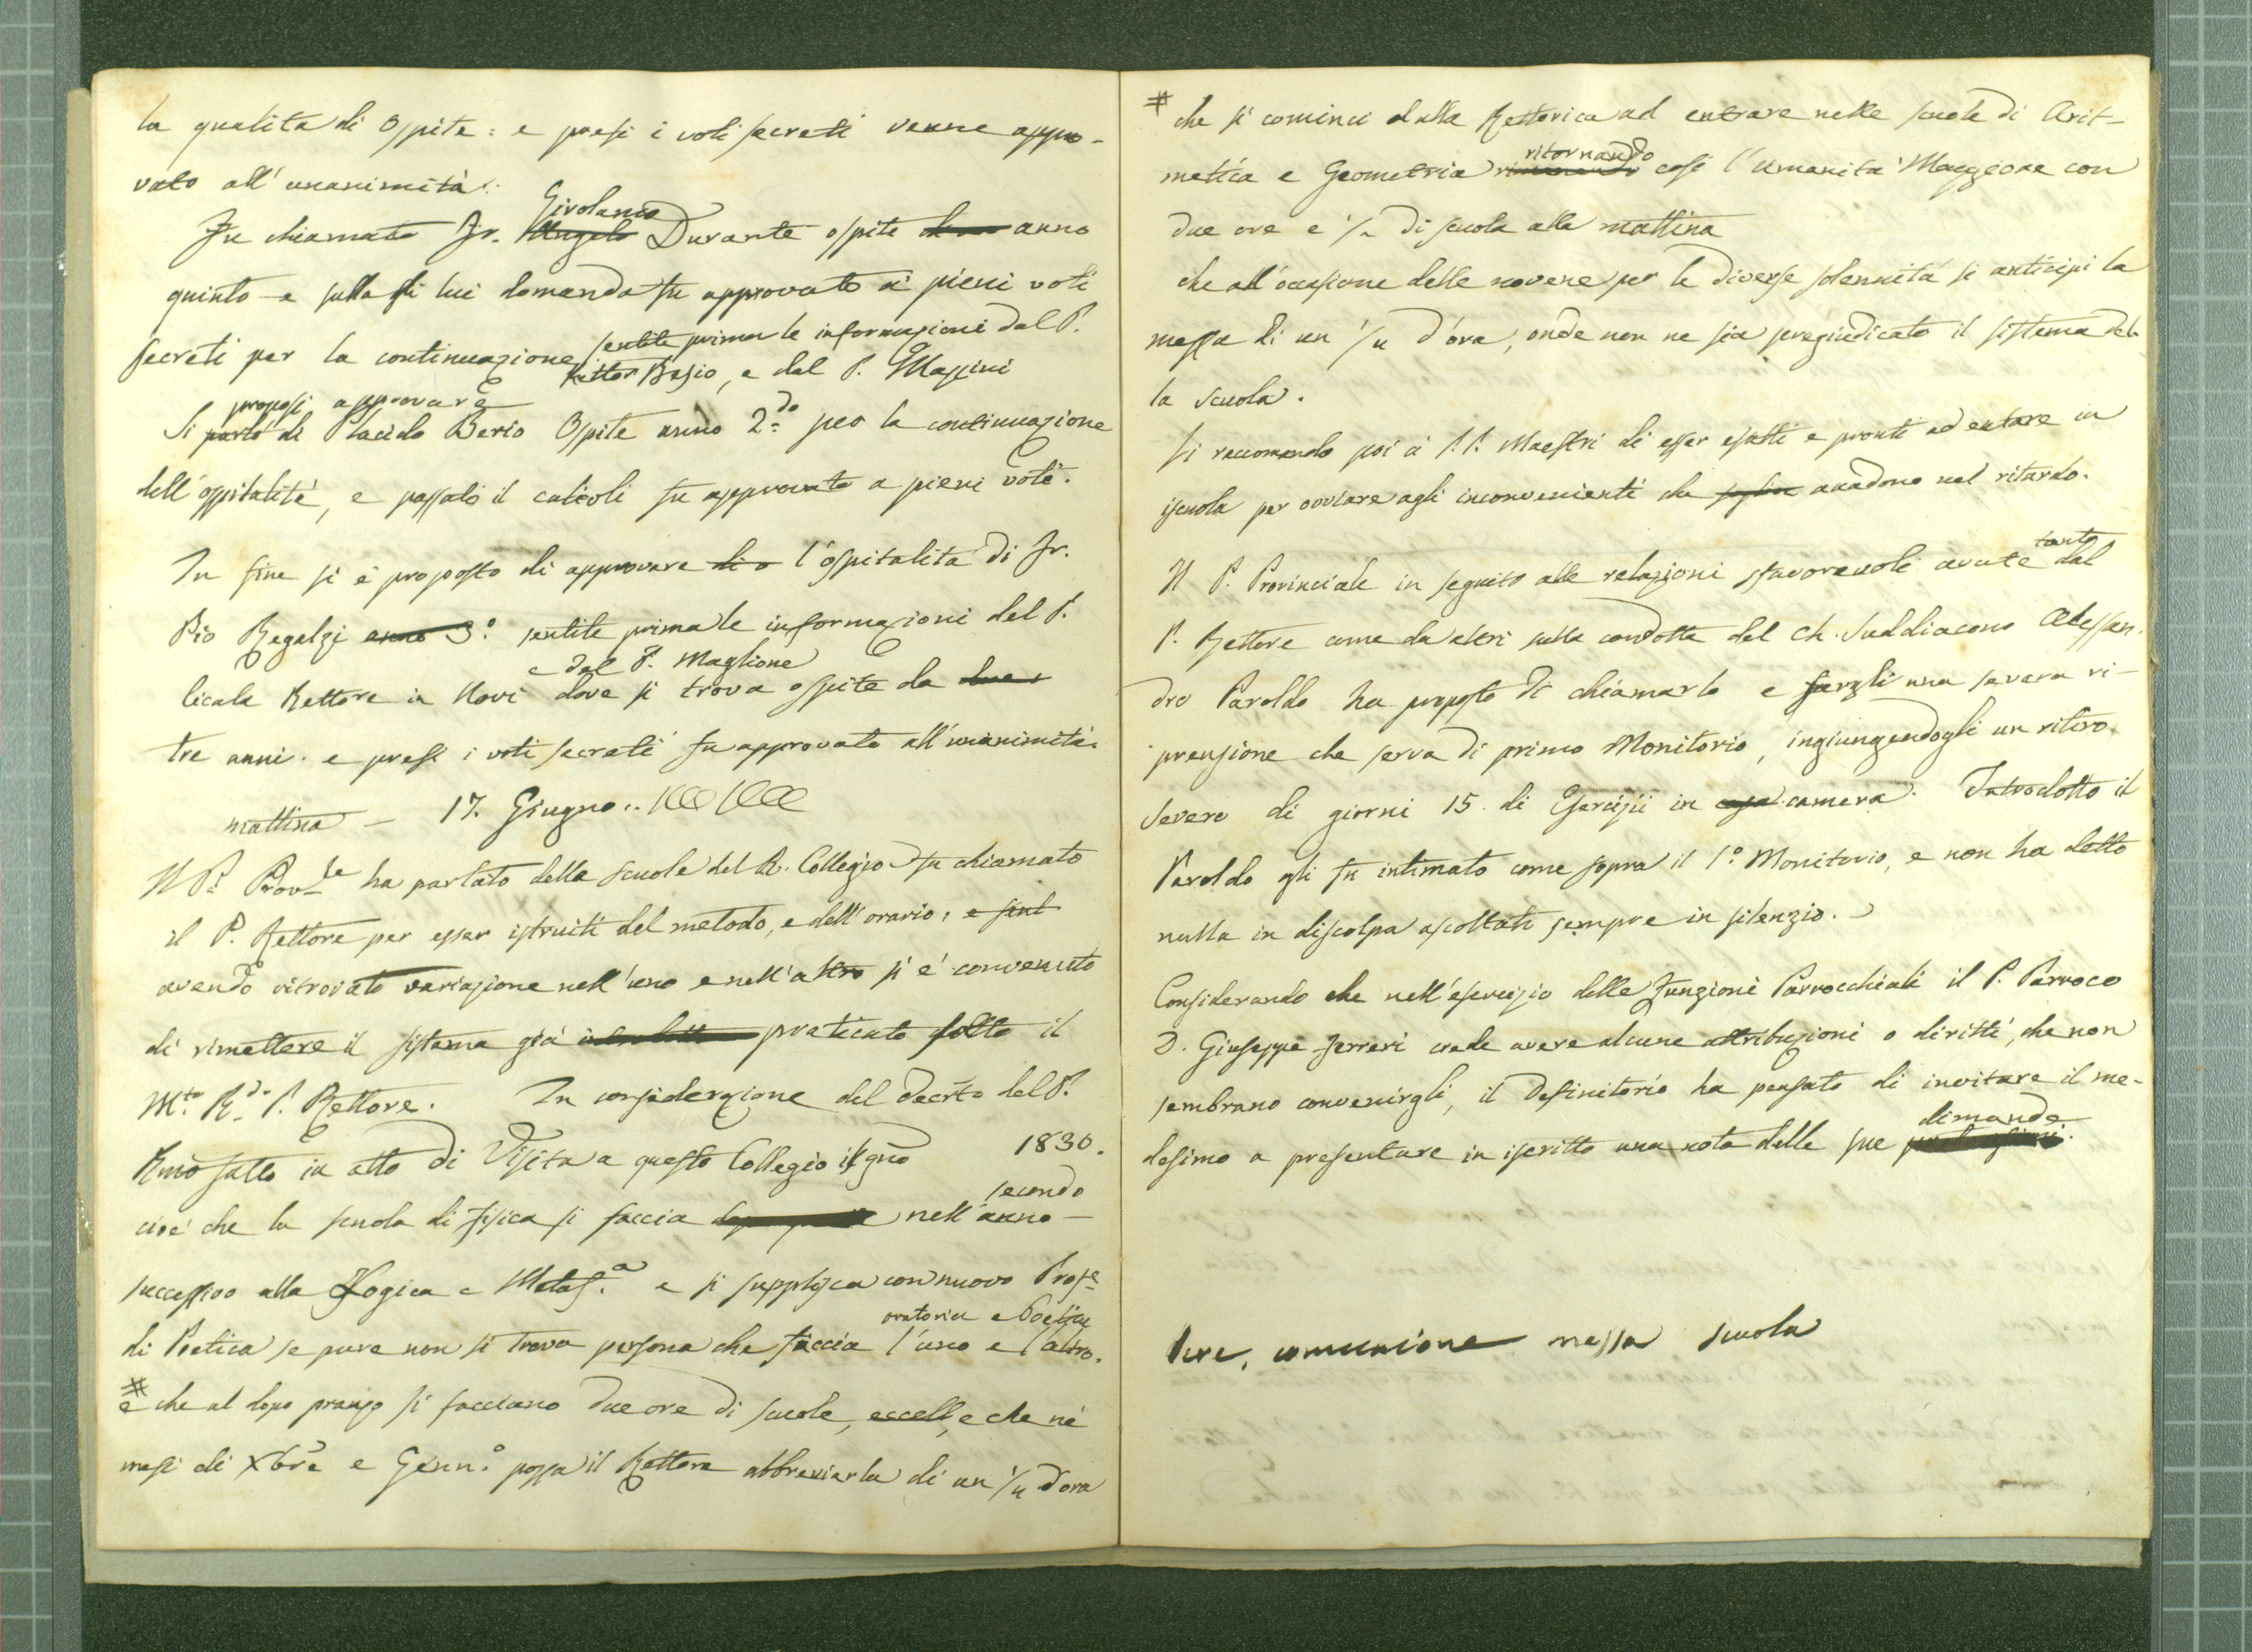 la qualita di Ospite: e presi i voti secreti venne appro-
vato all'unanimità.
Girolamo
Fu chiamato Fr. Angelo Durante ospite anno
quinto e sulla di lui domanda fu approvato a pieni voti
secreti per la continuazione sentite prima le informazioni dal P.
Rettor Basio, e dal P. Massini
proposi approvare
Si parlò di Placido Berio Ospite anno 2do per la continuazione
dell'ospitalità, e passati il calcoli fu approvato a pieni voti.
In fine si è proposto di approvare di o l'ospitalità di Fr.
Pio Regalzi anno 3º sentite prima le informazioni del P.
e dal P. Maglione
licala Rettore in Novi dove si trova ospite da due
tre anni. e presi i voti secreti fu approvato all'unanimità.
mattina — 17. Giugno..
Il P. Provle ha parlato della scuole del R. Collegio fu chiamato
il P. Rettore per esser istruiti del metodo, e dell'orario; e sent
avendo ritrovato variazione nell'uno e nell'altro si è convenuto
di rimettere il sistema già praticato sotto il
Mto Rdo P. Rettore. In considerazione del Decrto del P.
Rmo fatto in atto di Visita a questo Collegio il gno 1830.
secondo
cioè che la scuola di fisica si faccia nell'anno —
successivo alla Logica e Metafa e si supplisca con nuovo Profe
oratoria e Poesia
di Poetica se pure non si trova persona che faccia l'uno e l'altro.
#
e che al dopo pranzo si facciano due ore di scuole, eccell, e che nè
mesi di Xbre e Gennº possa il Rettore abbreviarla di un ¼ d'ora
# che si cominci dalla Rettorica ad entrare nelle scuole di Arit-
ritornando
metica e Geometria rimanendo così l'umanità Maggiore con
due ore e ½ di scuola alla mattina
che all'occasione delle novene per le diverse solennità si anticipi la
messa di un ¼ d'ora, onde non ne sia pregiudicato il sistema del-
la scuola.
Si raccomanda poi a' P.P. Maestri di esser esatti e pronti ad entrare in
iscuola per ovviare agli inconvenienti che accadono nel ritardo.
tanto
Il P. Provinciale in seguito alle relazioni sfavorevoli avute dal
P. Rettore come da altri sulla condotta del Ch. Suddiacono Alessan-
dro Paroldo ha proposto di chiamarlo e fargli una severa ri-
prensione che serva di primo Monitorio, ingiungendogli un ritiro
severo di giorni 15. di Esercizii in camera. Introdotto il
Paroldo gli fu intimato come sopra il 1º Monitorio, e non ha detto
nulla in discolpa ascoltati sempre in silenzio.
Considerando che nell'esercizio delle funzioni Parrocchiali il P. Parroco
D. Giuseppe Ferreri crede avere alcune attribuzioni o diritti, che non
sembrano convenirgli, il Definitorio ha pensato di invitare il me-
dimande
desimo a presentare in iscritto una nota delle sue
comunione messa scuola